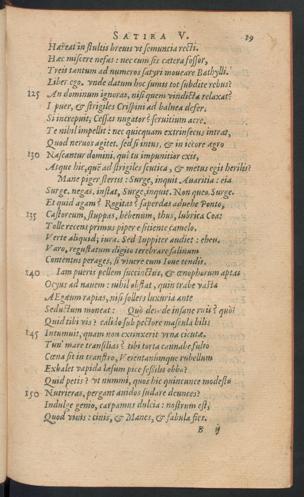 SATIRA V. 19
Hæreat in stultis breuis vt semuncia recti.
Hæc miscere nefas: nec cum sis cætera fossor,
Treis tantum ad numeros satyri moueare Bathylli.
Liber ego. vnde datum hoc sumis tot subdite rebus?
125 An dominum ignoras, nisi quem vindicta relaxat?
I puer, & strigiles Crispini ad balnea defer.
Si increpuit, Cessas nugator? seruitium acre
Te nihil impellit: nec quicquam extrinsecus intrat,
Quod neruos agitet. sed si intus, & in iecore ægro
130 Nascantur domini, qui tu impunitior exis,
Atque hic, quē ad strigiles scutica, & metus egit herilis?
Mane piger stertis: Surge, inquit Auaritia: eia
Surge. negas. instat, Surge, inquit. Non queo. Surge.
Et quid agam? Rogitas? saperdas aduehe Ponto,
135 Castoreum, stuppas, hebenum, thus, lubrica Coa:
Tolle recens primus piper e sitiente camelo.
Verte aliquid; iura. Sed Iuppiter audiet: eheu.
Varo, regustatum digito terebrare salinum
Contentus perages, si viuere cum Ioue tendis.
140 Iam pueris pellem succinctus, & œnophorum aptas
Ocyus ad nauem: nihil obstat, quin trabe vasta
AEgæum rapias, nisi sollers luxuria ante
Seductum moneat: Quò deinde insane ruis? quò?
Quid tibi vis? calido sub pectore mascula bilis
145 Intumuit, quam non exstinxerit vrna cicutæ.
Tun' mare transilias? tibi torta cannabe fulto
Cœna sit in transtro, Veientanúmque rubellum
Exhalet vapida læsum pice sessilis obba?
Quid petis? vt nummi, quos hîc quincunce modesto
150 Nutrieras, pergant auidos sudare deunces?
Indulge genio, carpamus dulcia: nostrum est,
Quod viuis: cinis, & Manes, & fabula fies.
B ij